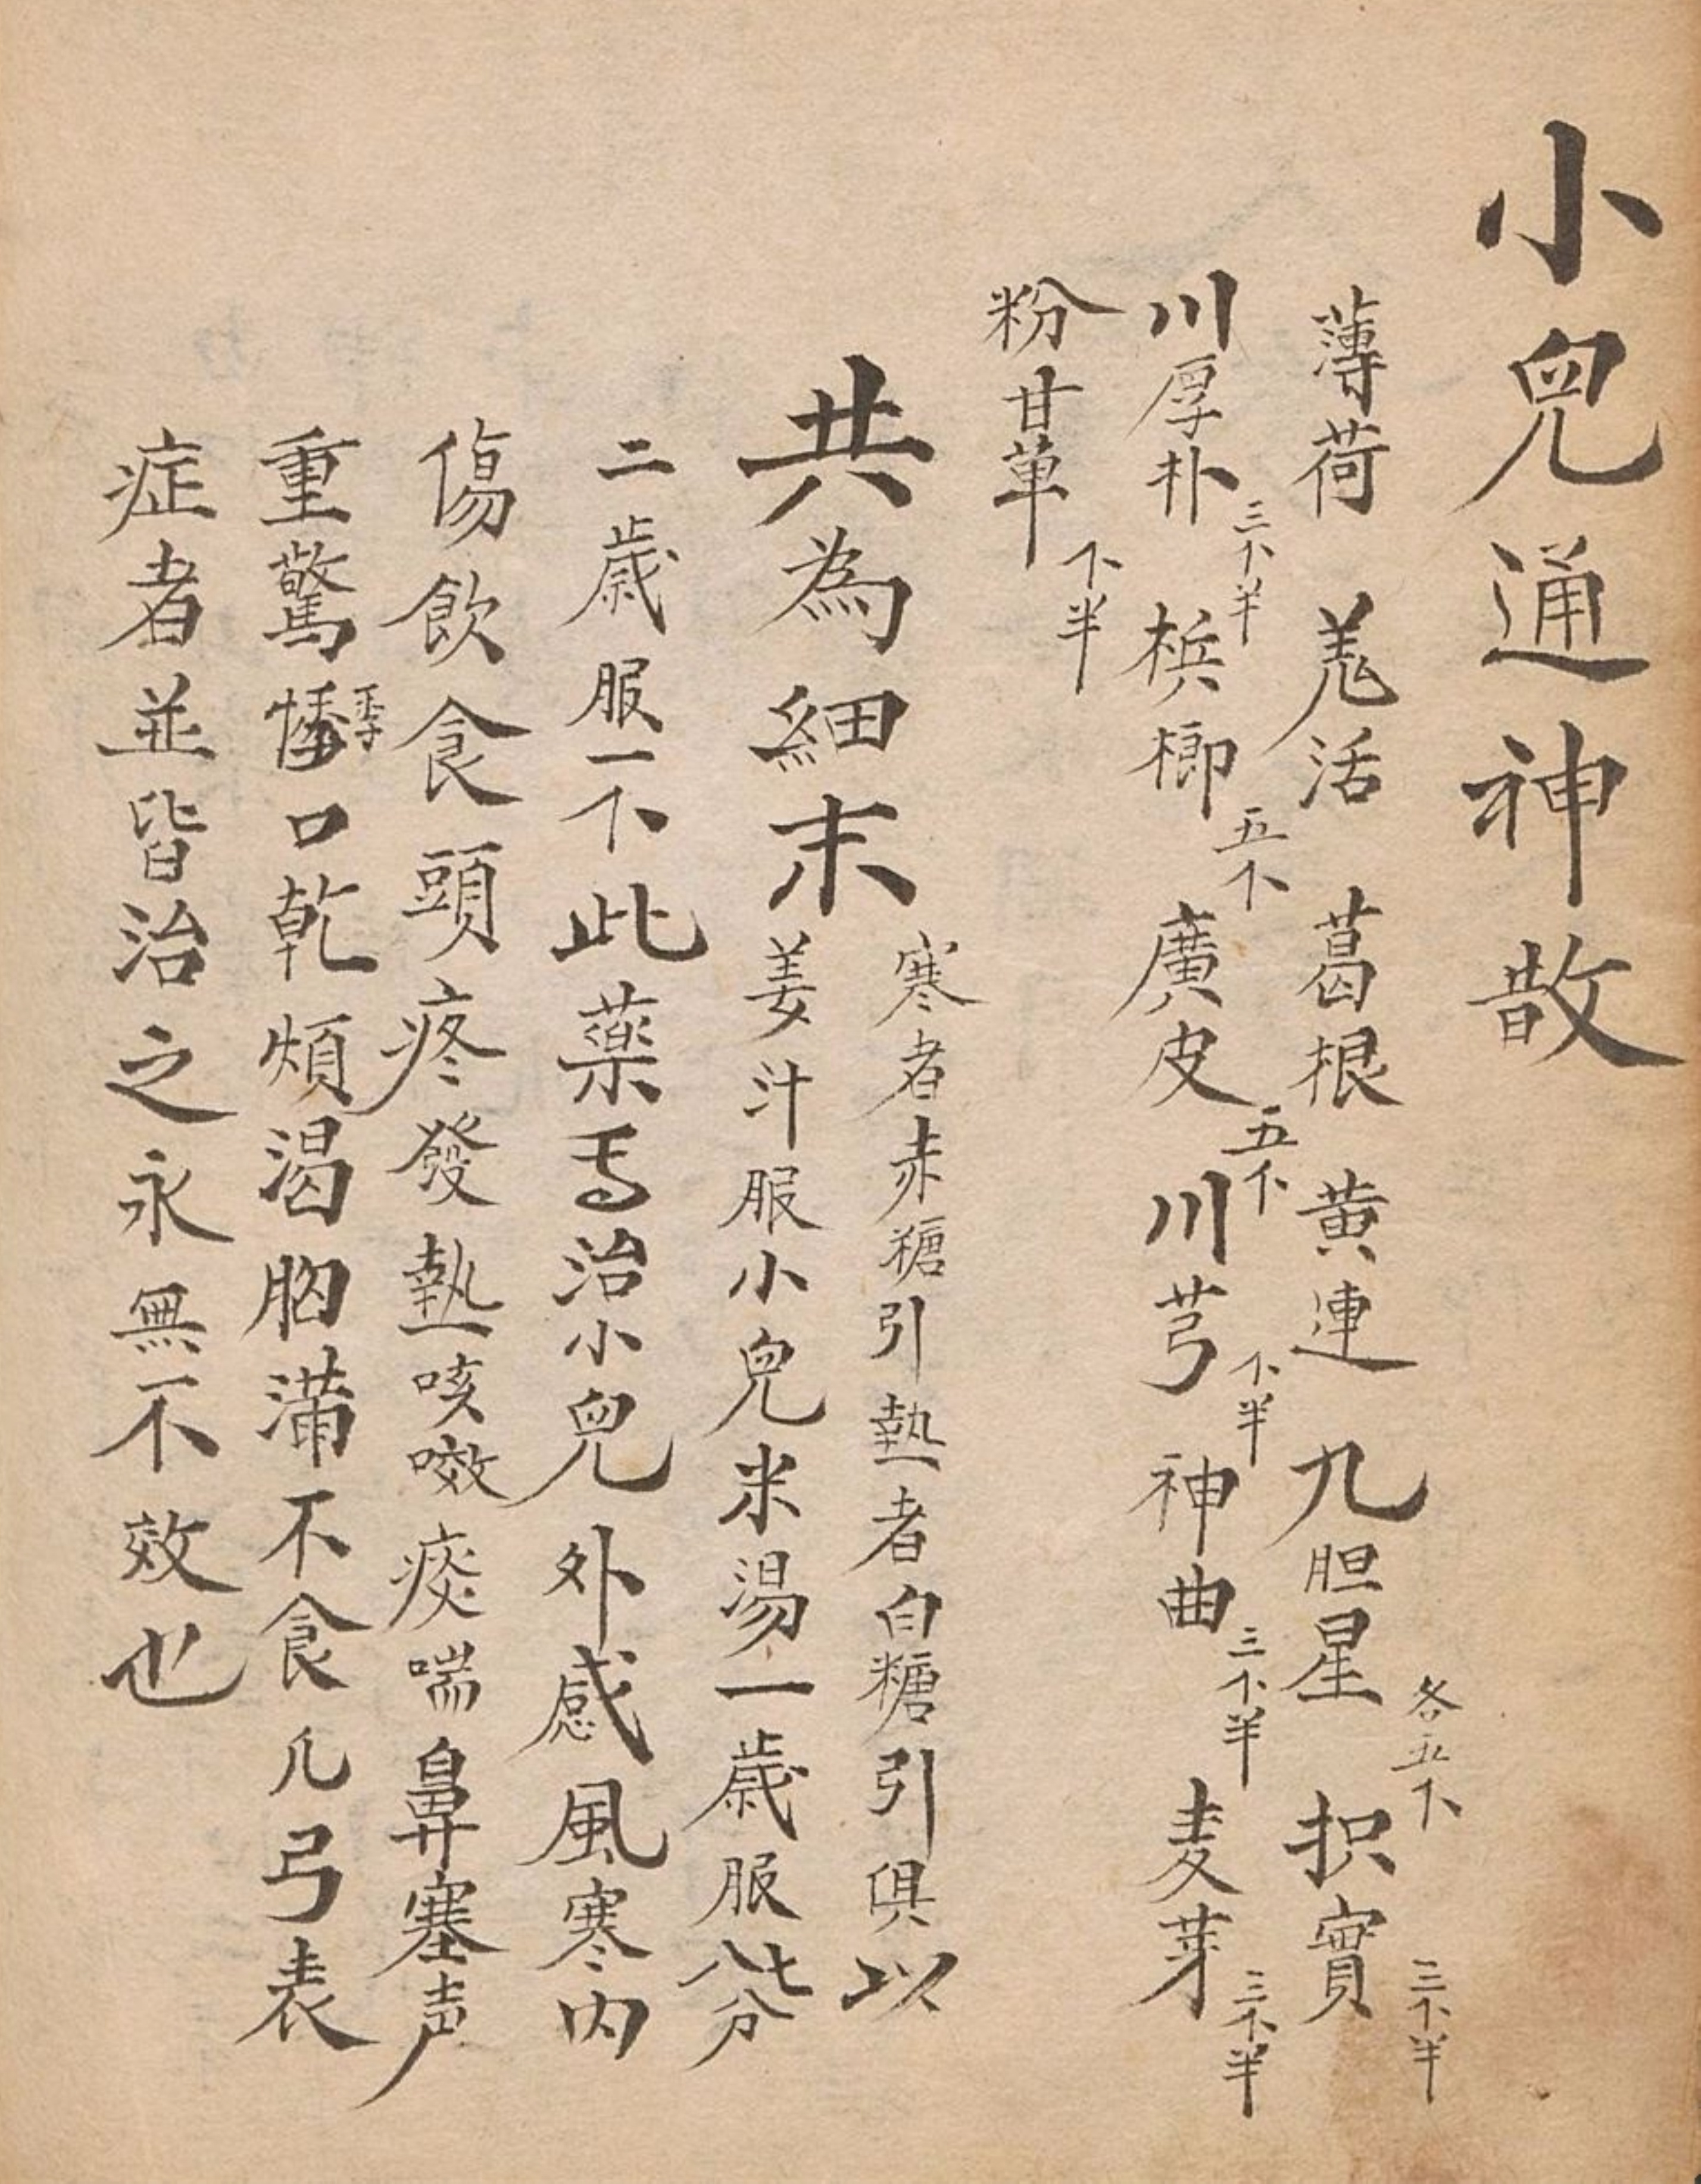 小兒通神散
薄荷 羌活 葛根 黄連 九胆星 各五下 枳實 三下半
川厚朴 三下半 梹榔 五下 廣皮 五下 川芎 下半 神曲 三下半 麦芽 三下半
粉甘草 下半
共為細末 寒者赤糖引熱者白糖引俱以
姜汁服小兒米湯一歲服七八分
二歲服一下此藥専治小兒外感風寒内
傷飲食頭疼發熱咳嗽痰喘鼻塞声
重驚悸口乾煩渴胸満不食凡弓表
症者並皆治之永無不效也